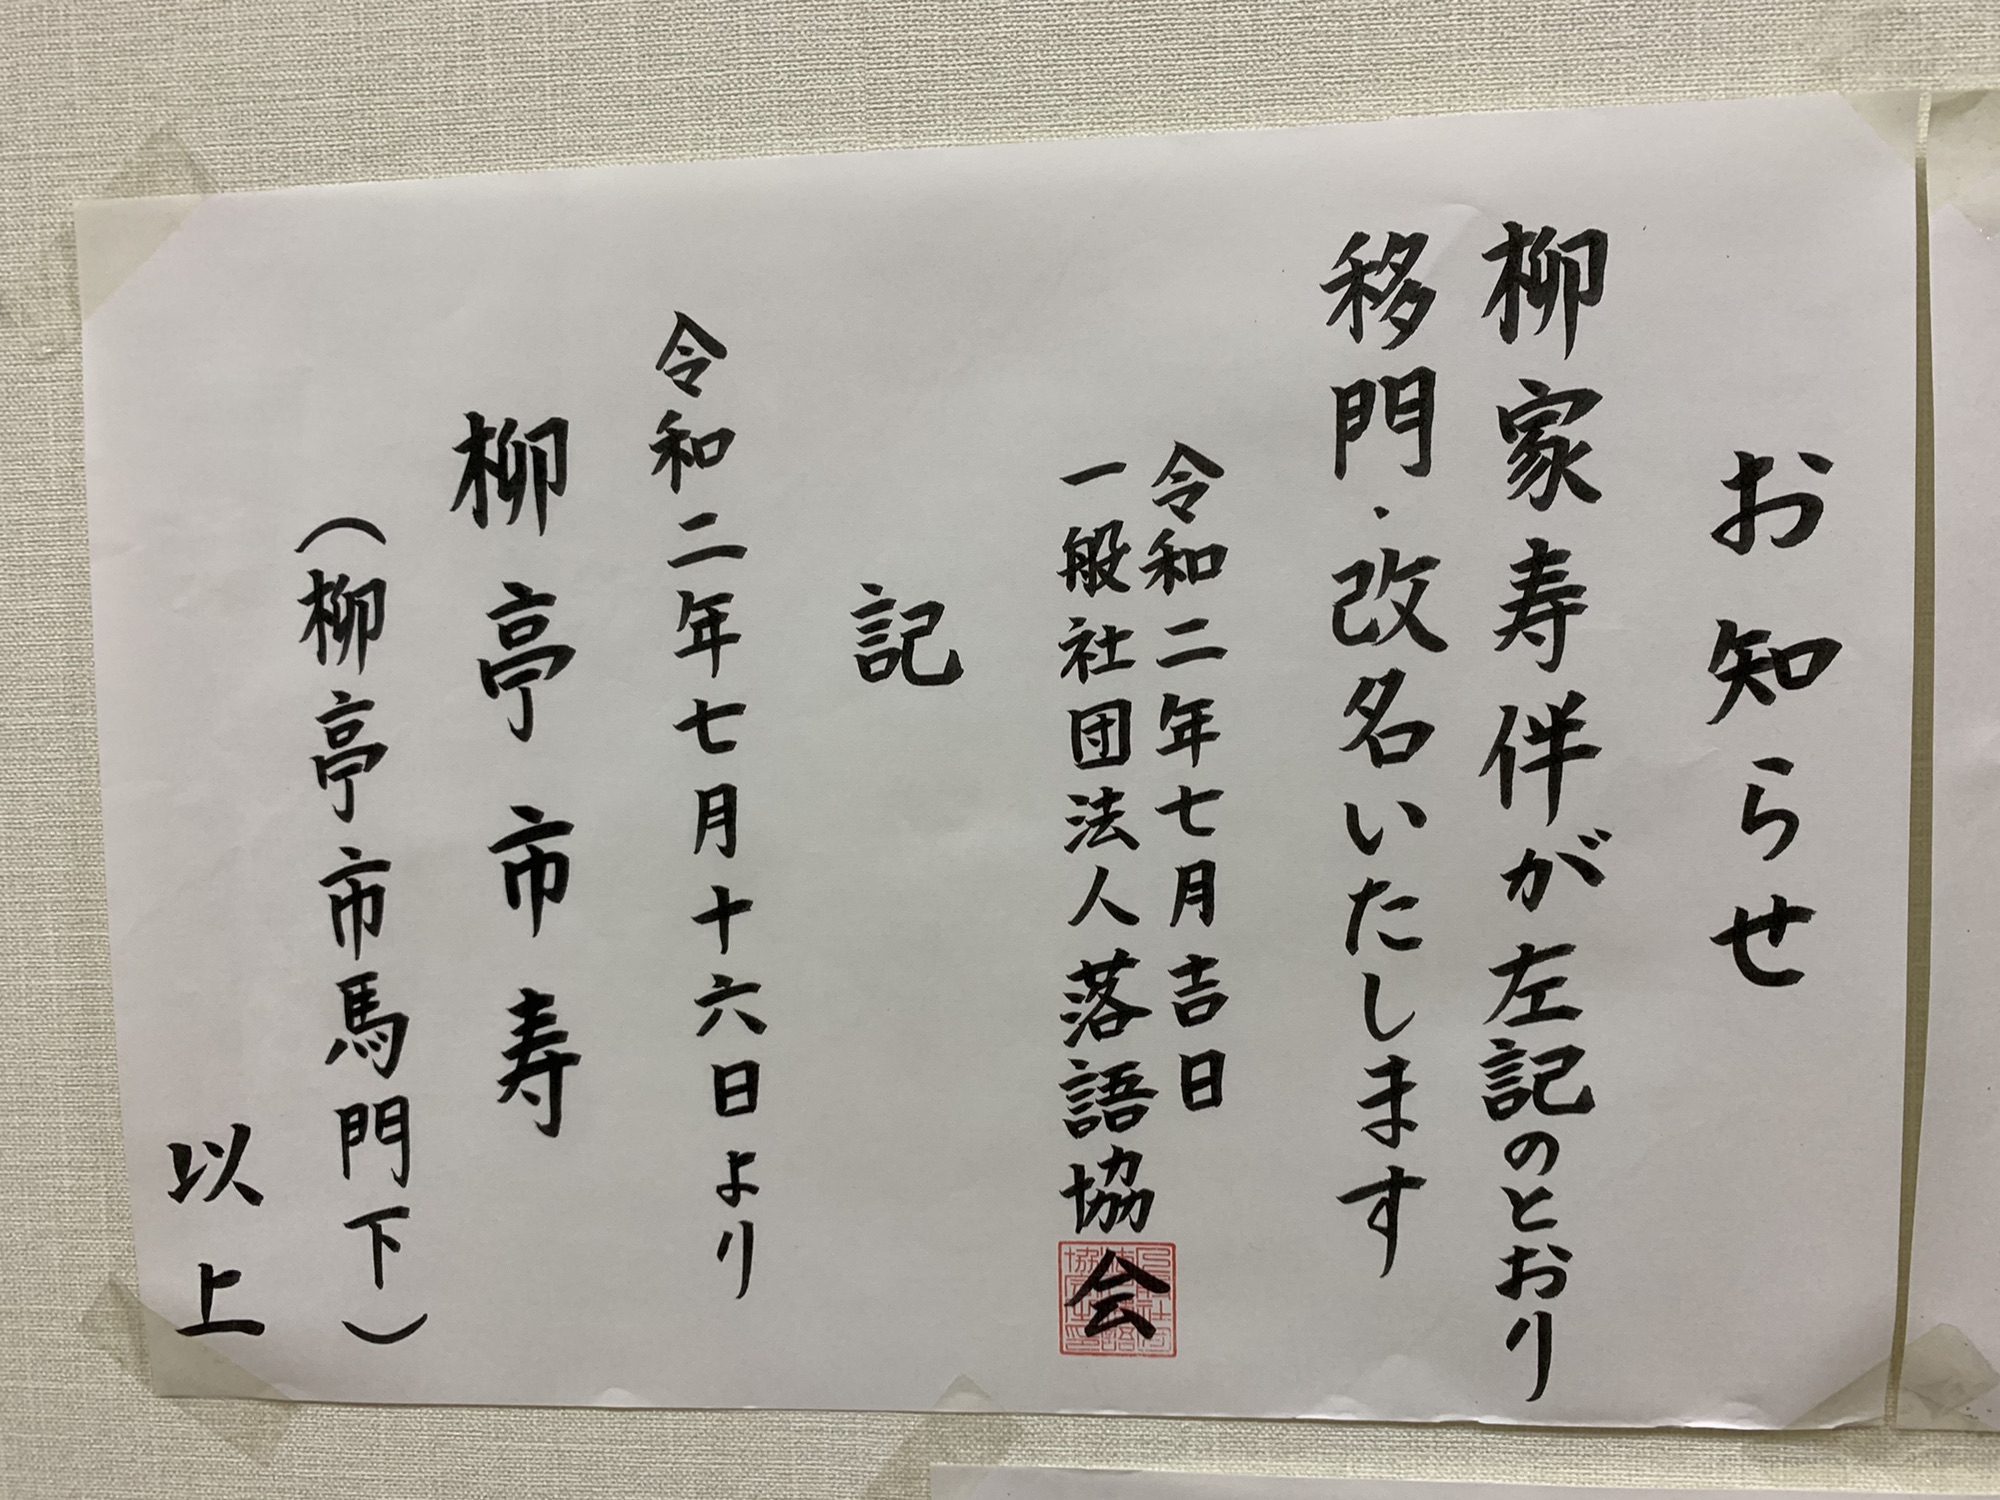 お知らせ
柳家寿伴が左記のとおり
移門・改名いたします
令和二年七月吉日
一般社団法人落語協会
記
令和二年七月十六日より
柳亭市寿
（柳亭市馬門下）
以上